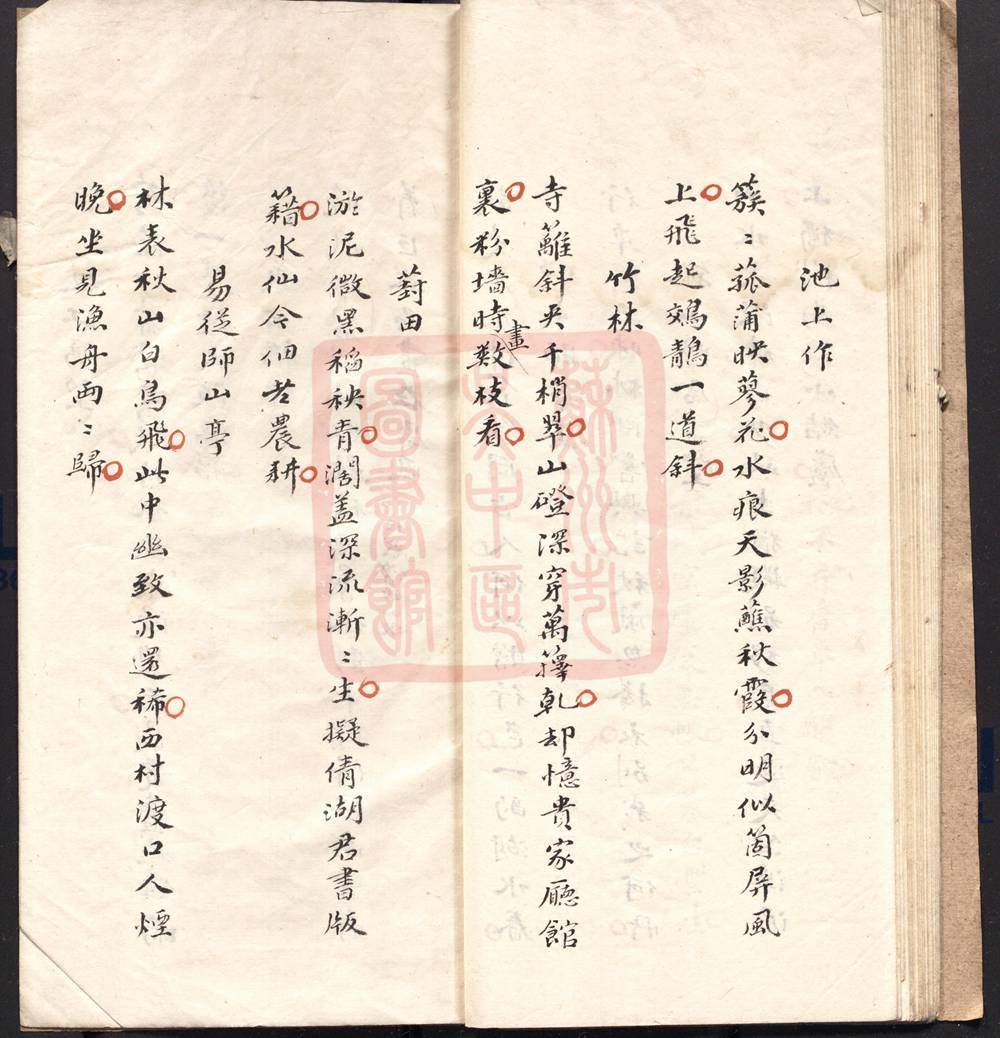 池上作
簇〻菰蒲映蓼花水痕天影蘸秋霞分明似箇屏風
上飛起鵁鶄一道斜
竹林
寺籬斜夾千梢翠山磴深穿萬籜乾却憶貴家廳館
裏粉墻時畫數枝看
葑田
淤泥微黑稻秧青濶盖深流漸〻生擬倩湖君書版
籍水仙今佃老農耕
易従師山亭
林表秋山白鳥飛此中幽致亦還稀西村渡口人煙
晚坐見漁舟両〻歸
蘇州市
吳中區
圖書館